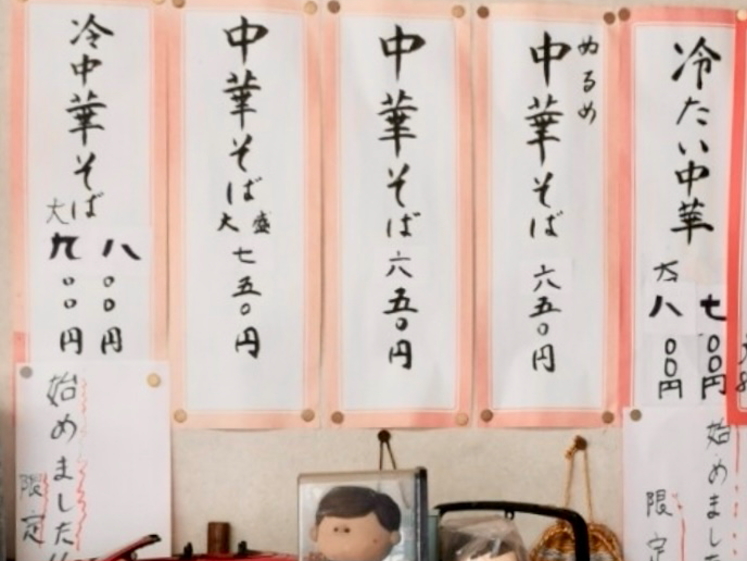 冷たい中華
七〇〇円
大
八〇〇円
始めました
限定
ぬるめ
中華そば 六五〇円
中華そば 六五〇円
中華そば
大盛
七五〇円
冷中華そば
八〇〇円
大
九〇〇円
始めました
限定